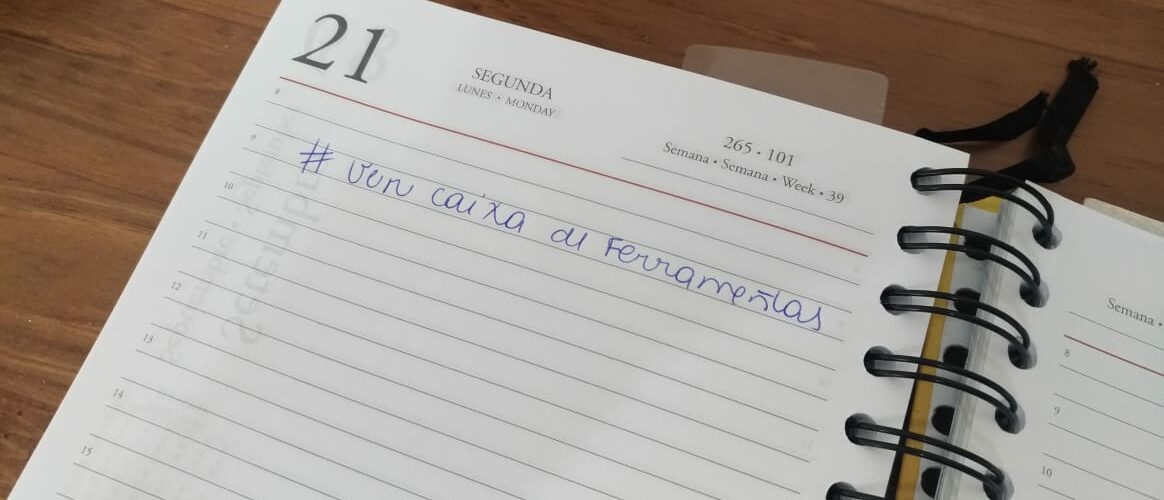 21
SEGUNDA
LUNES • MONDAY
265 • 101
Semana • Semana • Week • 39
8
9
# ver caixa de Ferramentas
10
11
12
13
14
15
Semana •
8
9
10